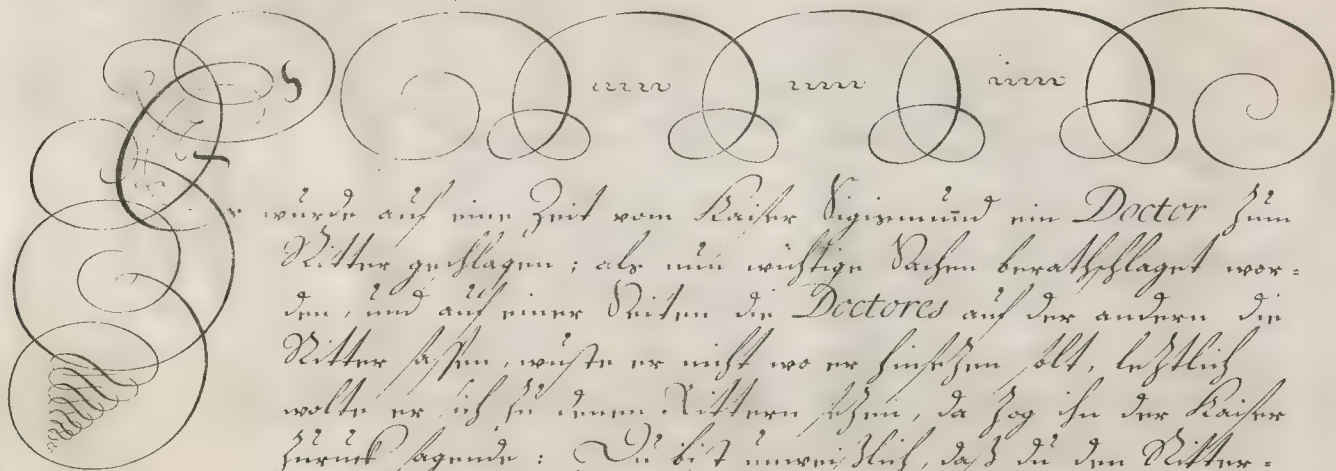 Es wurde auf eine Zeit vom Kaiser Sigismund ein Doctor zum
Ritter geschlagen; als nun wichtige Sachen berathschlaget wor=
den, und auf einer Seiten die Doctores auf der andern die
Ritter sassen, wuste er nicht wo er hinsetzen solt, letztlich
wolte er sich zu denen Rittern setzen, da zog ihn der Kaiser
zuruck sagende: Du bist unweißlich, daß du den Ritter=